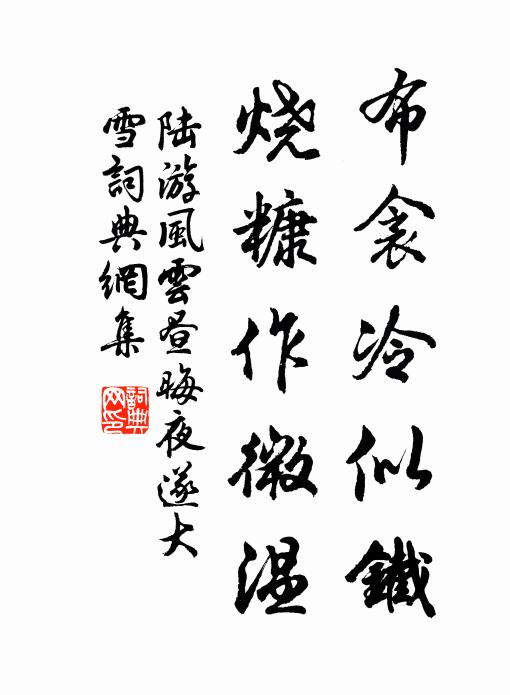 布衾冷似鐵
烧糠作微温
陆游風雲晝晦夜遂大
雪詞典網集
詞典
网印